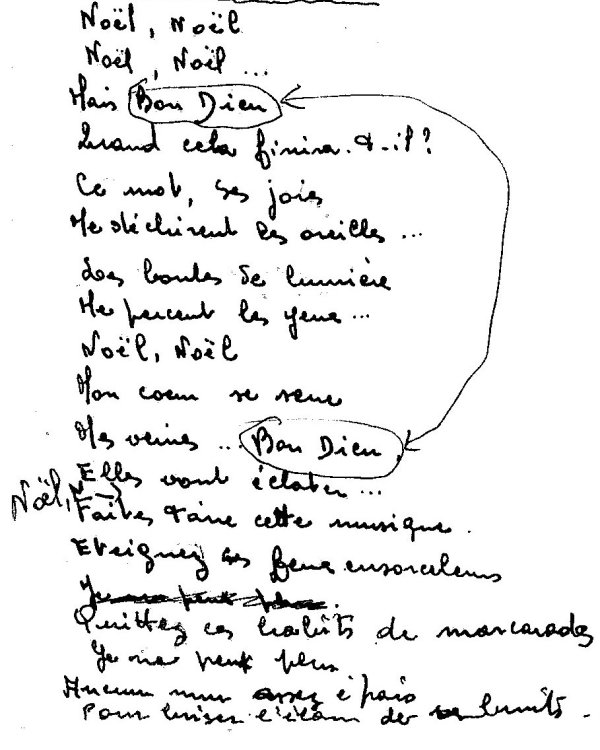 Noël, Noël
Noël, Noël ...
Mais Bon Dieu
Quand cela finira-t-il?
Ce mot, ses joies
Me déchirent les oreilles ...
Les boules de lumière
Me percent les yeux ...
Noël, Noël
Mon coeur se serre
Mes veines ... Bon Dieu,
Elles vont éclater ...
Noël, N
Faites taire cette musique.
Eteignez ces feux ensorceleurs
Je ne peux plus.
Quittez ces habits de mascarades
Je ne peux plus
Aucun mur assez épais
Pour briser l'élan de bruits.